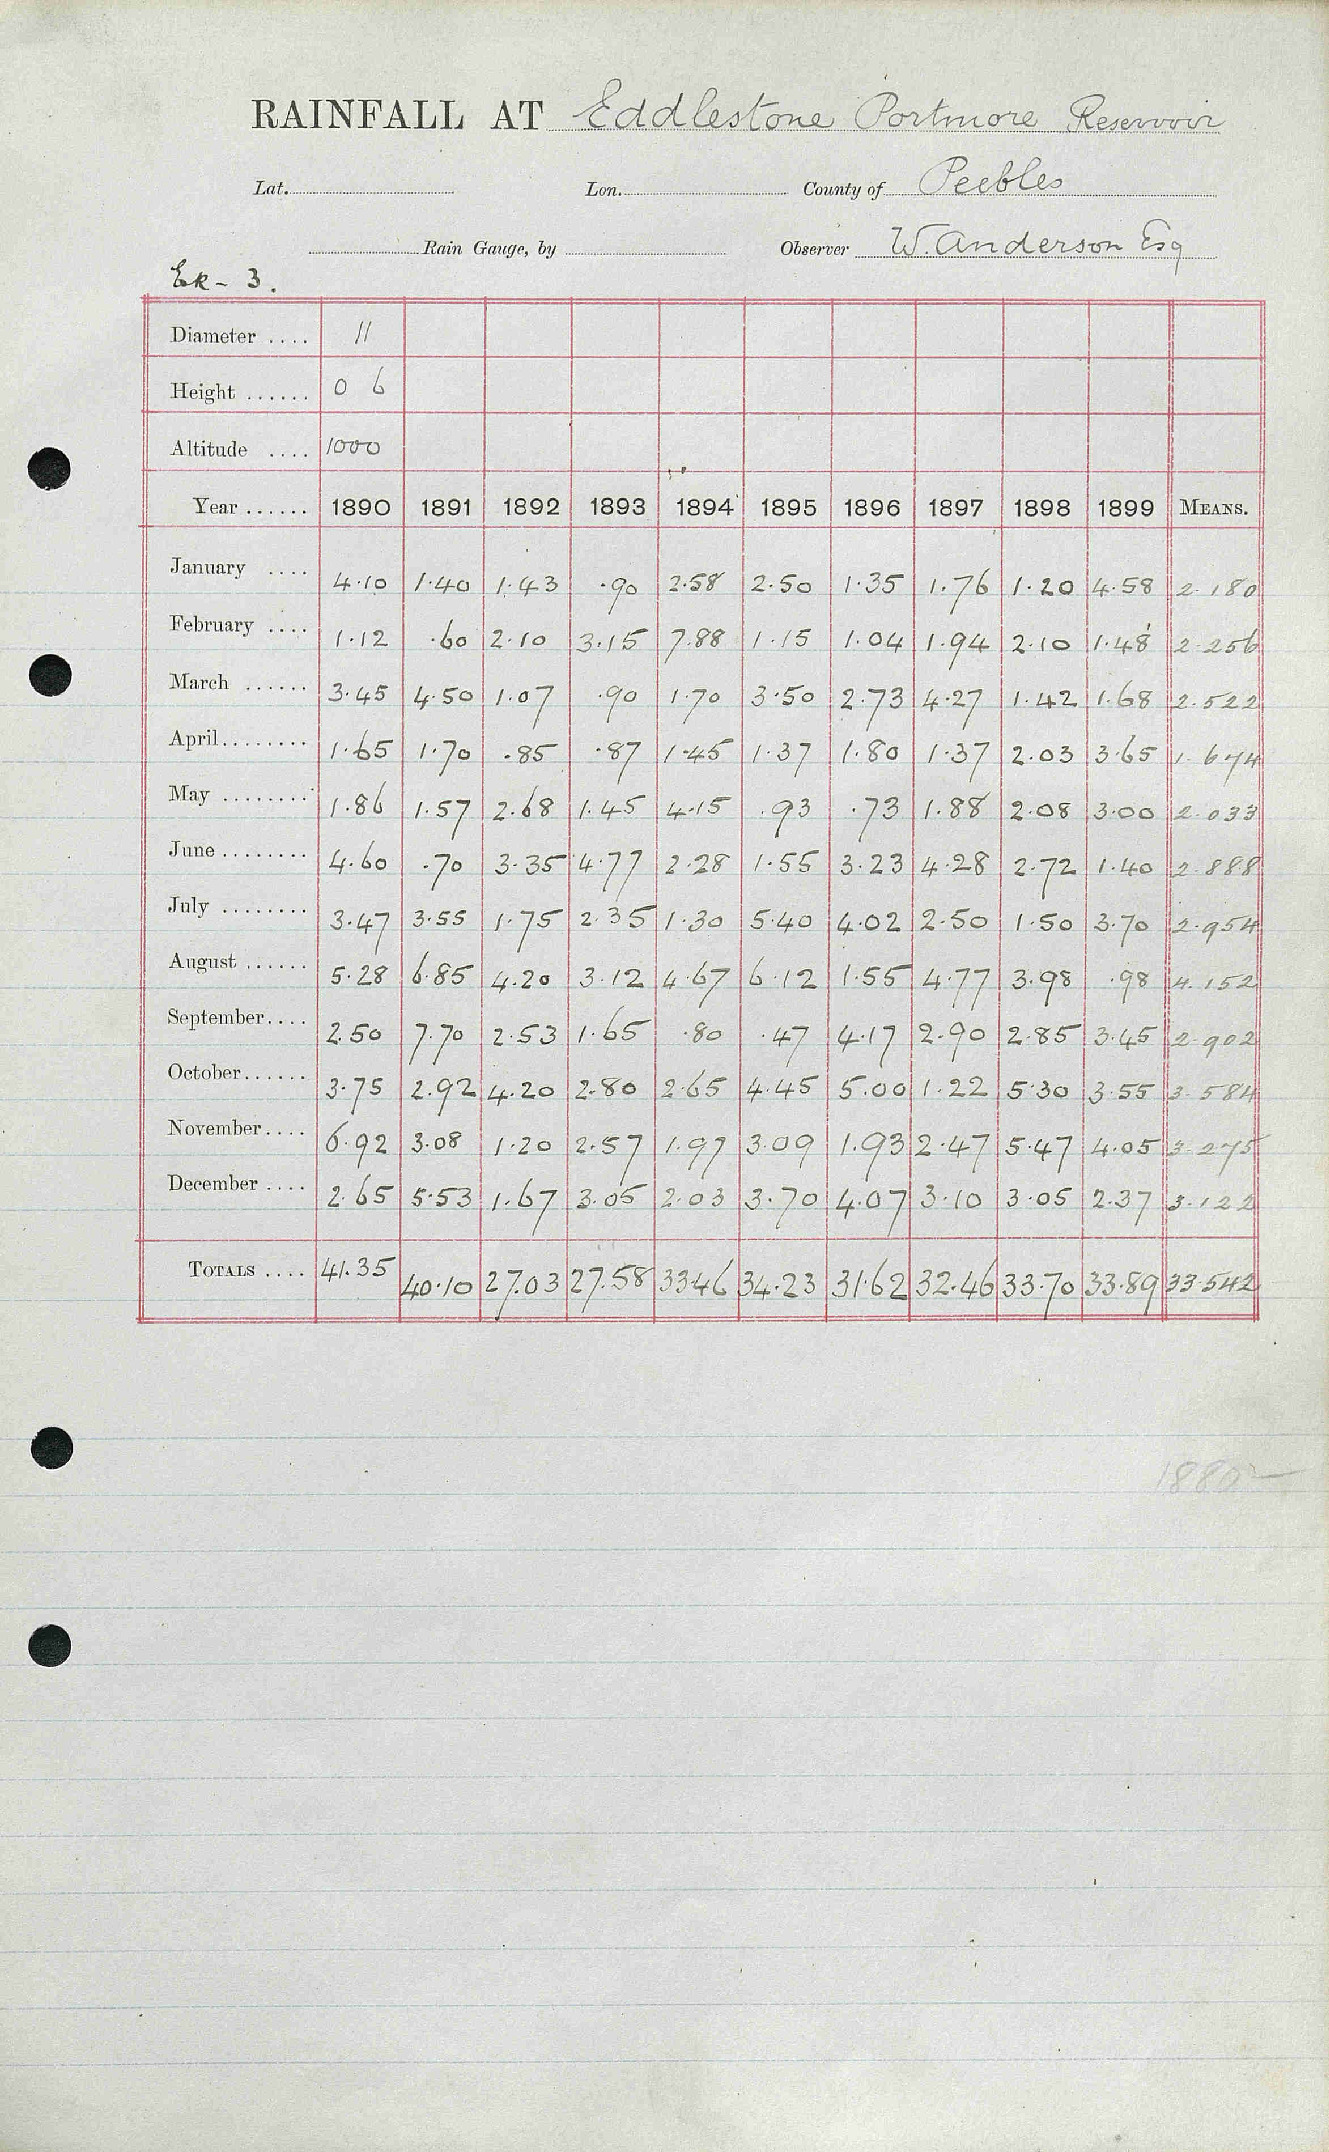 RAINFALL AT Eddlestone Portmore Reservoir
Lat. Lon. County of Peebles
Rain Gauge, by Observer W. Anderson Esq
Ek - 3.
Diameter .... 11
Height ...... 0 6
Altitude .... 1000
Year ...... 1890 1891 1892 1893 1894 1895 1896 1897 1898 1899 MEANS.
January .... 4.10 1.40 1.43 .90 2.58 2.50 1.35 1.76 1.20 4.58 2.180
February .... 1.12 .60 2.10 3.15 7.88 1.15 1.04 1.94 2.10 1.48 2.256
March ...... 3.45 4.50 1.07 .90 1.70 3.50 2.73 4.27 1.42 1.68 2.522
April........ 1.65 1.70 .85 .87 1.45 1.37 1.80 1.37 2.03 3.65 1.674
May ........ 1.86 1.57 2.68 1.45 4.15 .93 .73 1.88 2.08 3.00 2.033
June ........ 4.60 .70 3.35 4.77 2.28 1.55 3.23 4.28 2.72 1.40 2.888
July ........ 3.47 3.55 1.75 2.35 1.30 5.40 4.02 2.50 1.50 3.70 2.954
August ...... 5.28 6.85 4.20 3.12 4.67 6.12 1.55 4.77 3.98 .98 4.152
September.... 2.50 7.70 2.53 1.65 .80 .47 4.17 2.90 2.85 3.45 2.902
October...... 3.75 2.92 4.20 2.80 2.65 4.45 5.00 1.22 5.30 3.55 3.584
November.... 6.92 3.08 1.20 2.57 1.97 3.09 1.93 2.47 5.47 4.05 3.275
December .... 2.65 5.53 1.67 3.05 2.03 3.70 4.07 3.10 3.05 2.37 3.122
TOTALS .... 41.35 40.10 27.03 27.58 33.46 34.23 31.62 32.46 33.70 33.89 33.542